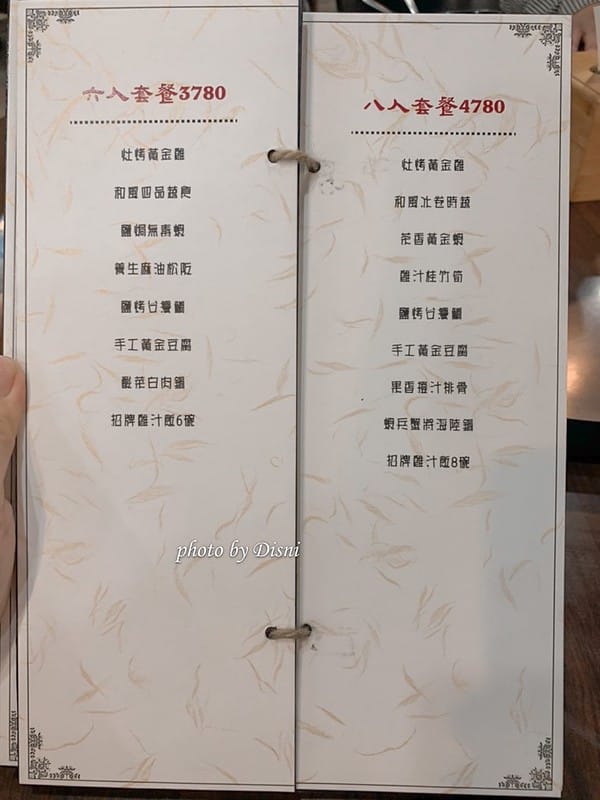 六人套餐3780
灶烤黃金雞
和風四品蔬息
鹽焗無毒蝦
養生麻油松阪
鹽烤台灣鯛
手工黃金豆腐
酸菜白肉鍋
招牌雞汁飯6碗
八人套餐4780
灶烤黃金雞
和風水卷時蔬
茶香黃金蝦
雞汁桂竹筍
鹽烤台灣鯛
手工黃金豆腐
果香擂汁排骨
蝦兵蟹將海陸鍋
招牌雞汁飯8碗
photo by Disni